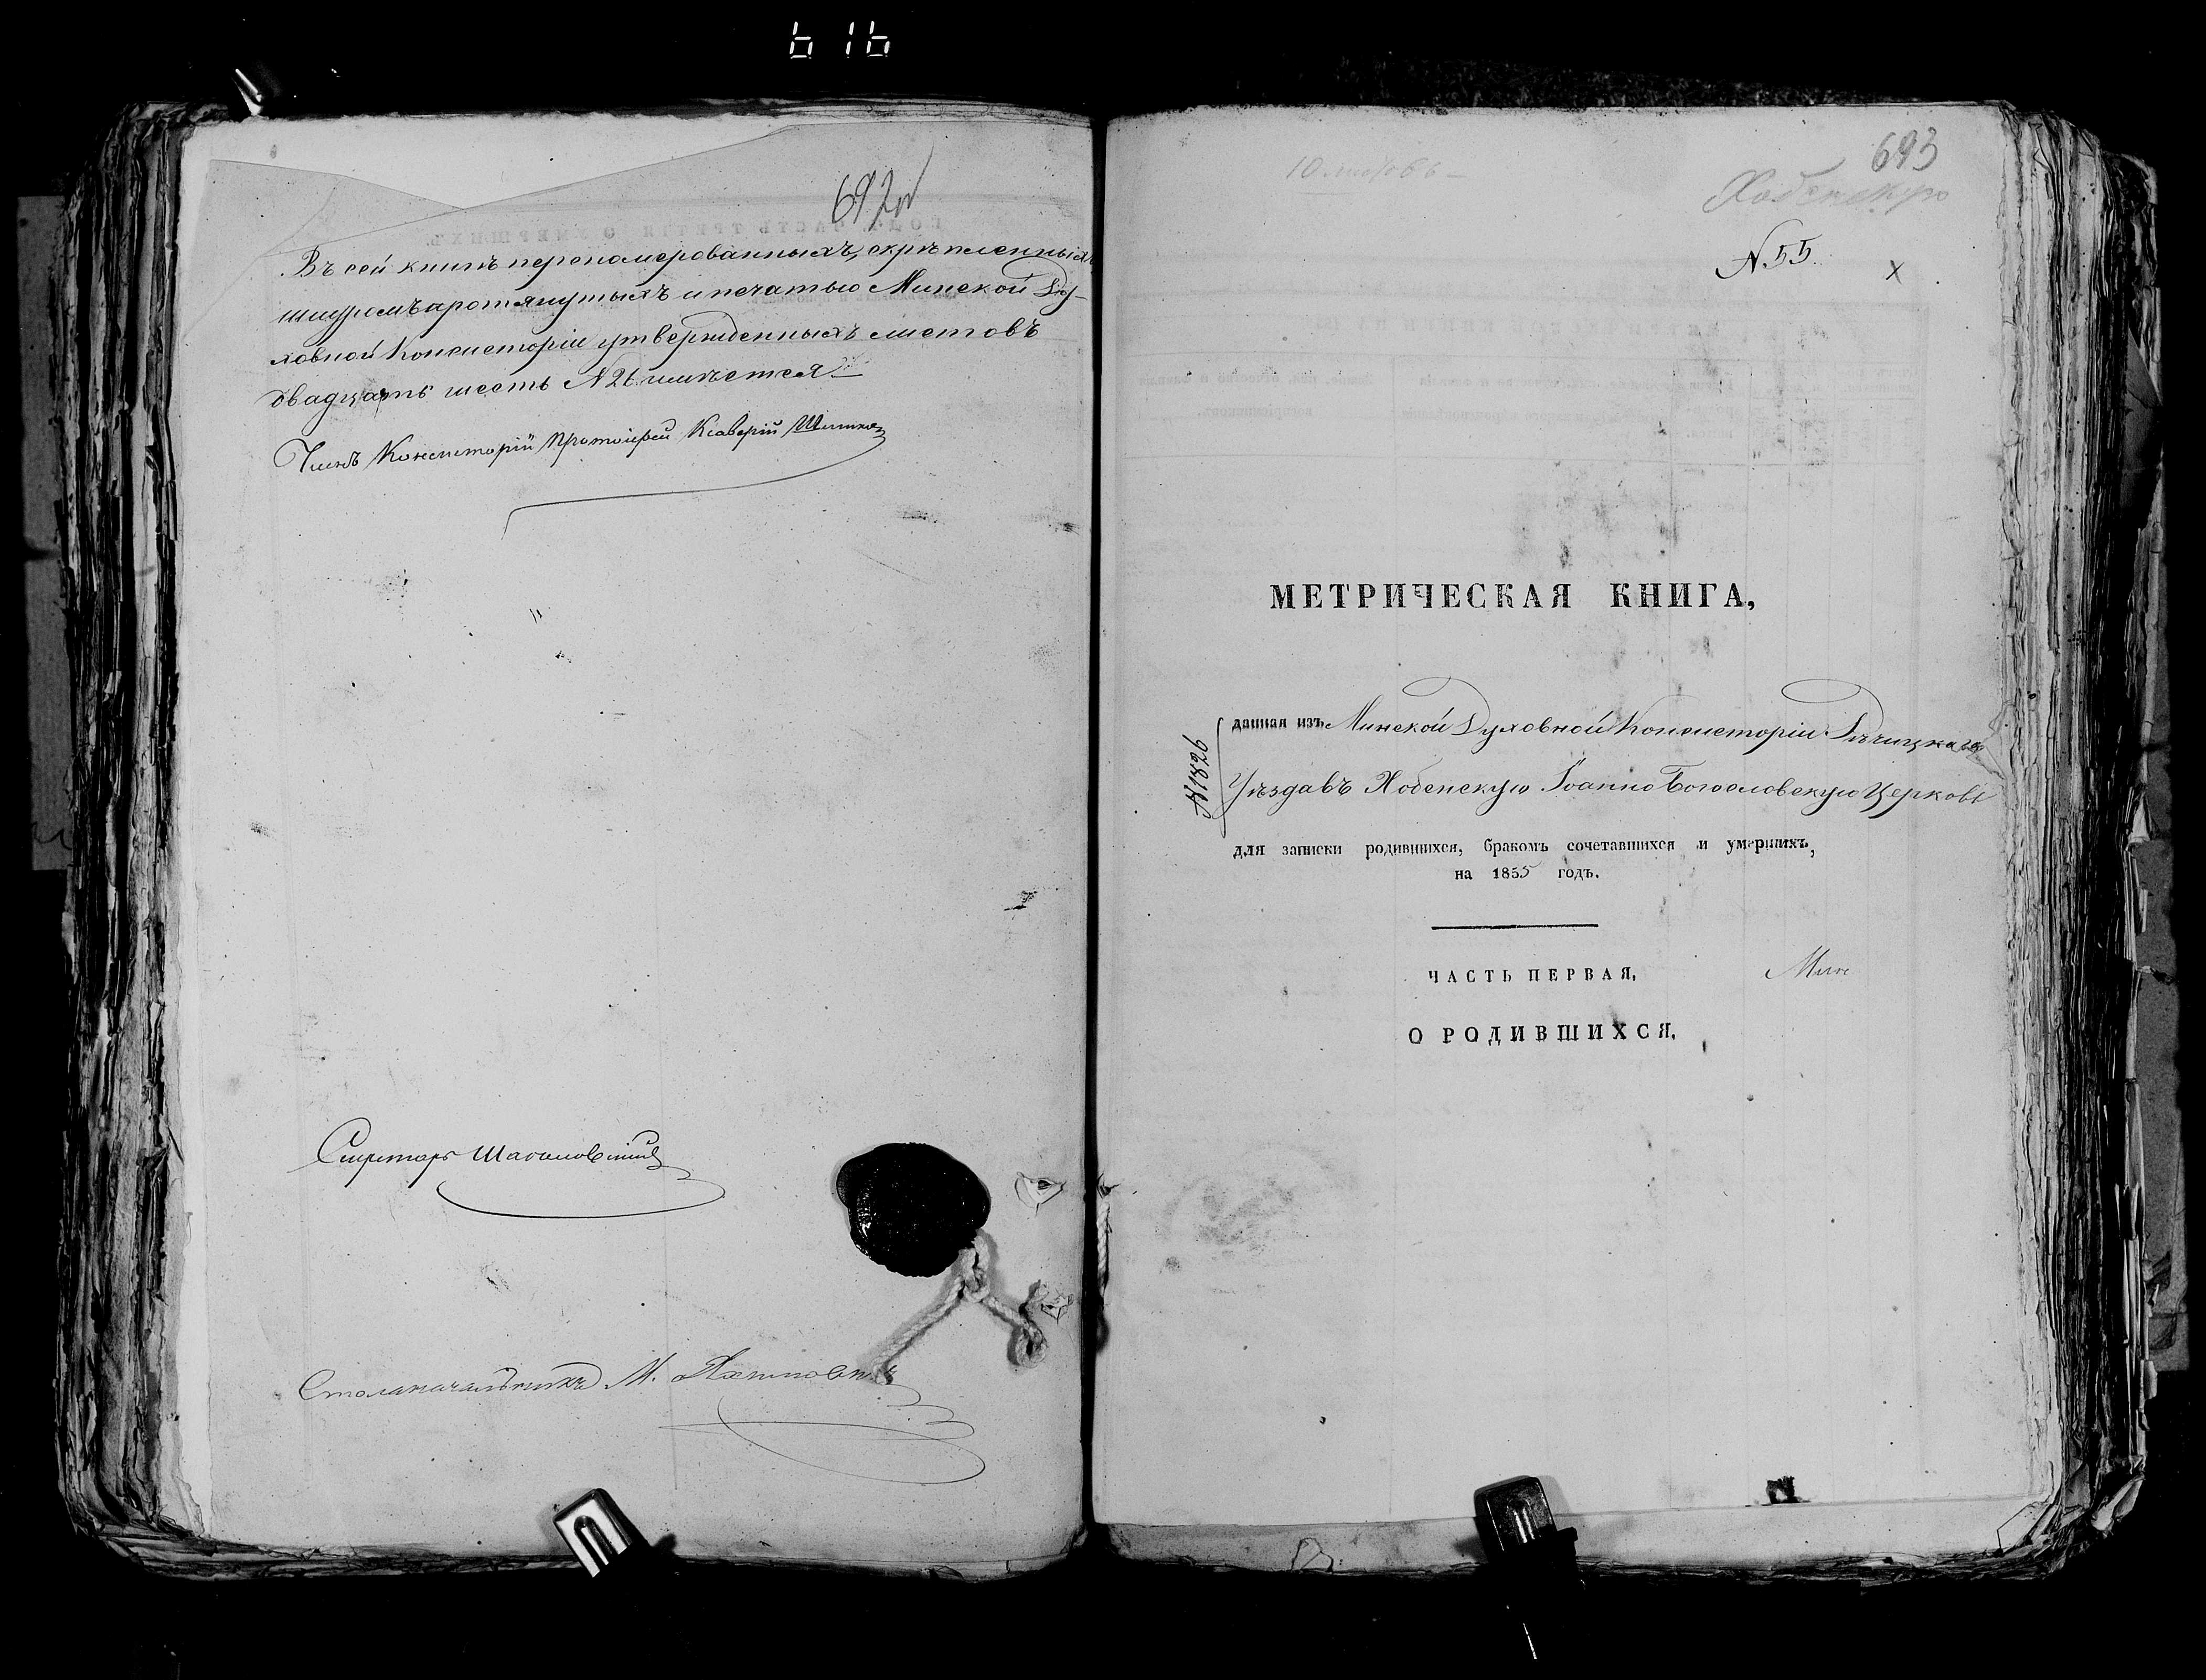 616
692 об
Въ сей книгѣ переномерованныхъ, скрѣпленныхъ
шнуромъ протянутыхъ и печатью Минской Ду-
ховной Консисторіи утвержденныхъ листовъ
двадцать шесть N 26. имѣется
Членъ Консисторіи Протоіерей Ксаверій
Секретарь
Столоначальникъ М.
693
10 листовъ
Хобенскую
N. 55.
х
МЕТРИЧЕСКАЯ КНИГА,
N 1826
данная изъ Минской Духовной Консисторіи Рѣчицкаго
Уѣзда въ Хобенскую Іоанно Богословскую Церковь
для записки родившихся, бракомъ сочетавшихся и умершихъ,
на 1855 годъ.
ЧАСТЬ ПЕРВАЯ,
О РОДИВШИХСЯ.